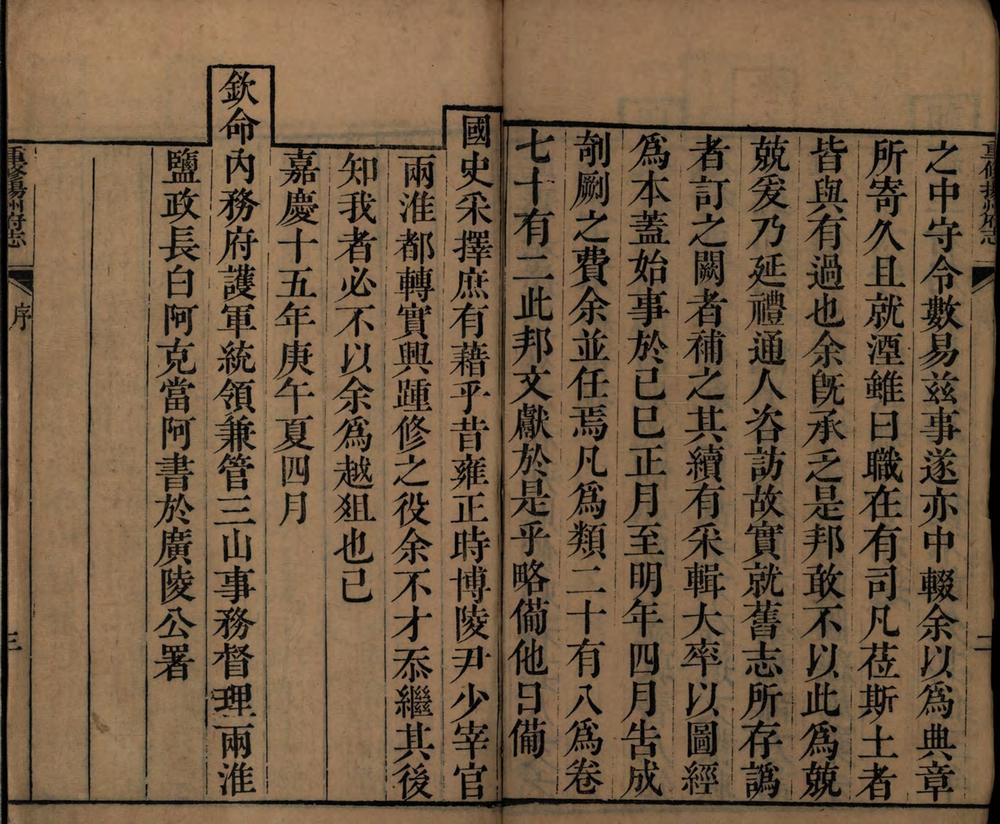 之中守令數易兹事遂亦中輟余以為典章
所寄久且就湮雖曰職在有司凡莅斯土者
皆與有過也余旣承乏是邦敢不以此為兢
兢爰乃延禮通人咨訪故實就舊志所存譌
者訂之闕者補之其續有采輯大率以圖經
為本蓋始事於己巳正月至明年四月吿成
剞劂之費余並任焉凡為類二十有八為卷
七十有二此邦文獻於是乎略備他日備
國史采擇庶有藉乎昔雍正時博陵尹少宰官
兩淮都轉實興踵修之役余不才忝繼其後
知我者必不以余為越俎也已
嘉慶十五年庚午夏四月
欽命內務府護軍統領兼管三山事務督理兩淮
鹽政長白阿克當阿書於廣陵公署
重修揚州府志
序
三